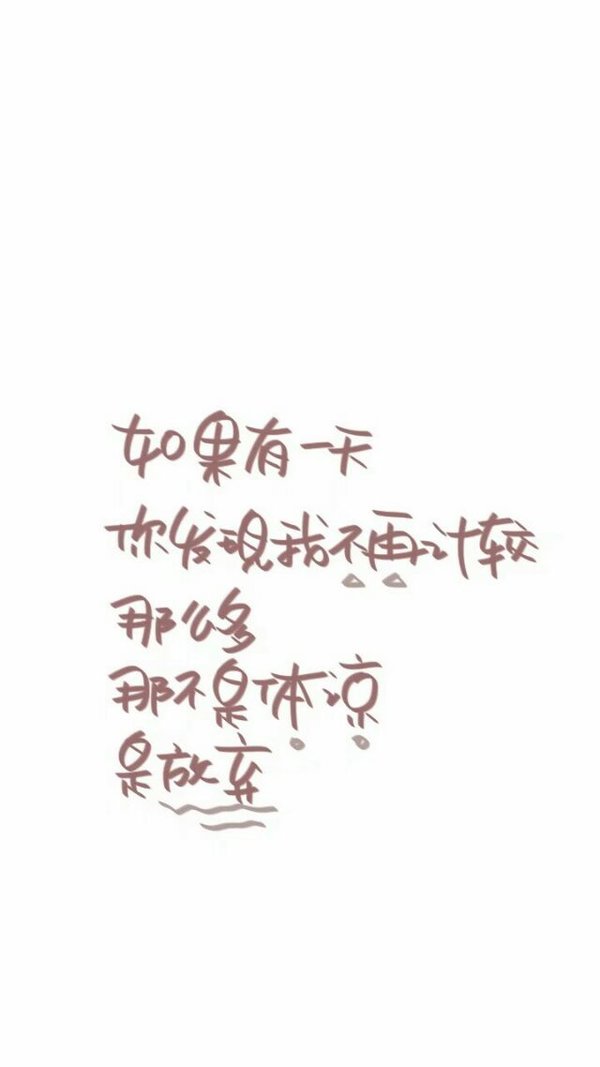 如果有一天
你发现我不再计较
那么多
那不是体凉
是放弃